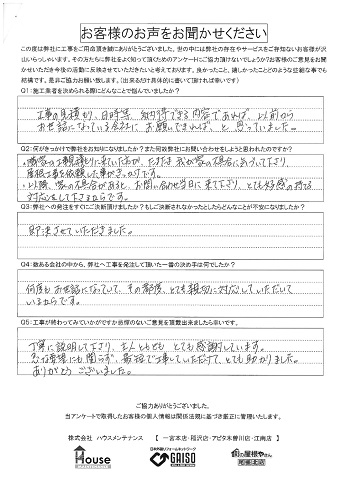 お客様のお声をお聞かせください
この度は弊社に工事をご用命頂き誠にありがとうございました。世の中には弊社の存在やサービスをご存知ないお客様が沢
山いらっしゃいます。その方たちに弊社をよく知って頂くためのアンケートにご協力頂けないでしょうか?お客様のご意見をお聞
かせいただき今後の活動に反映させていただきたいと考えております。良かったこと、嬉しかったことどのような些細な事でも
結構です。是非ご協力お願い致します。(出来るだけ具体的に書いて頂ければ幸いです)
Q1:施工業者を決められる際にどんなことで悩んでいましたか?
工事の見積り、日時等、納得できる内容であれば、以前から
お世話になっている会社に、お願いできれば、と思っていました。
Q2:何がきっかけで弊社をお知りになりましたか?また何故弊社にお問い合わせをしようと思われたのですか?
屋根工事を依頼した事がきっかけです。
・以降、家の不具合があると、お問い合わせ当日に来て下さり、とても好感の持てる
対応をして下さるからです。
Q3:弊社への発注をすぐにご決断頂けましたか?もしご決断されなかったとしたらどんなことが不安になりましたか?
即決させていただきました。
Q4:数ある会社の中から、弊社へ工事を発注して頂いた一番の決め手は何でしたか?
何度もお世話になっていて、その都度、とても親切に対応していただいて
いるからです。
Q5:工事が終わってみていかがですか忌憚のないご意見を頂戴出来ましたら幸いです。
丁寧に説明して下さり、主人ともども とても感謝しています。
急な要望にも関らず、最短で工事していただけて、とても助かりました。
ありがとうございました。
ご協力ありがとうございました。
当アンケートで取得したお客様の個人情報は関係法規に基づき厳正に管理いたします。
株式会社 ハウスメンテナンス 【 一宮本店・稲沢店・アピタ木曽川店・江南店 】
House
日本外壁リフォームネットワーク
GAISO
街の屋根やさん